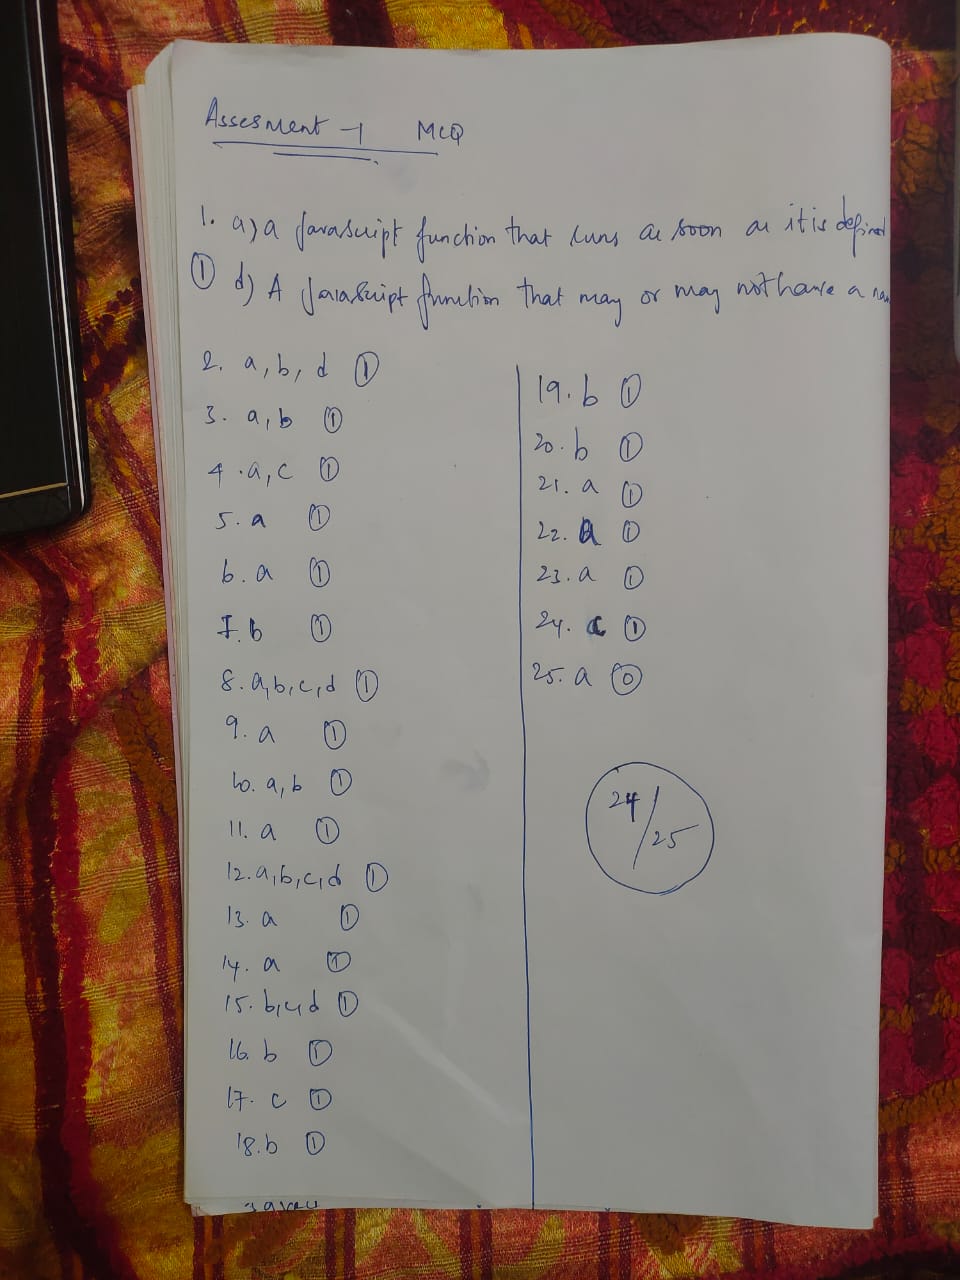 Assesment -1 MCQ
1. a) a Javascript function that runs as soon as it is defined
① d) A Javascript function that may or may not have a
2. a, b, d ①
3. a, b ①
4. a, c ①
5. a ①
6. a ①
7. b ①
8. a, b, c, d ①
9. a ①
10. a, b ①
11. a ①
12. a, b, c, d ①
13. a ①
14. a ①
15. b, c, d ①
16. b ①
17. c ①
18. b ①
19. b ①
20. b ①
21. a ①
22. a ①
23. a ①
24. c ①
25. a ⓪
24/25